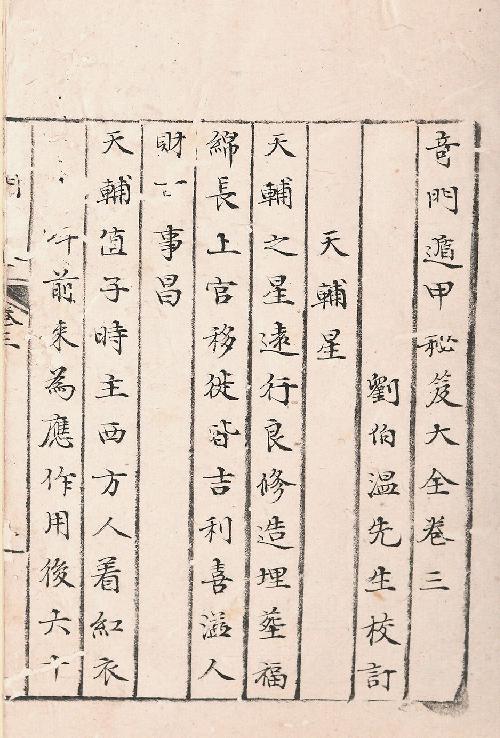 奇門遁甲秘笈大全卷三
劉伯温先生校訂
天輔星
天輔之星遠行良修造埋塟福
綿長上官移徙皆吉利喜溢人
財 事昌
天輔值子時主西方人着紅衣
前来為應作用後六十